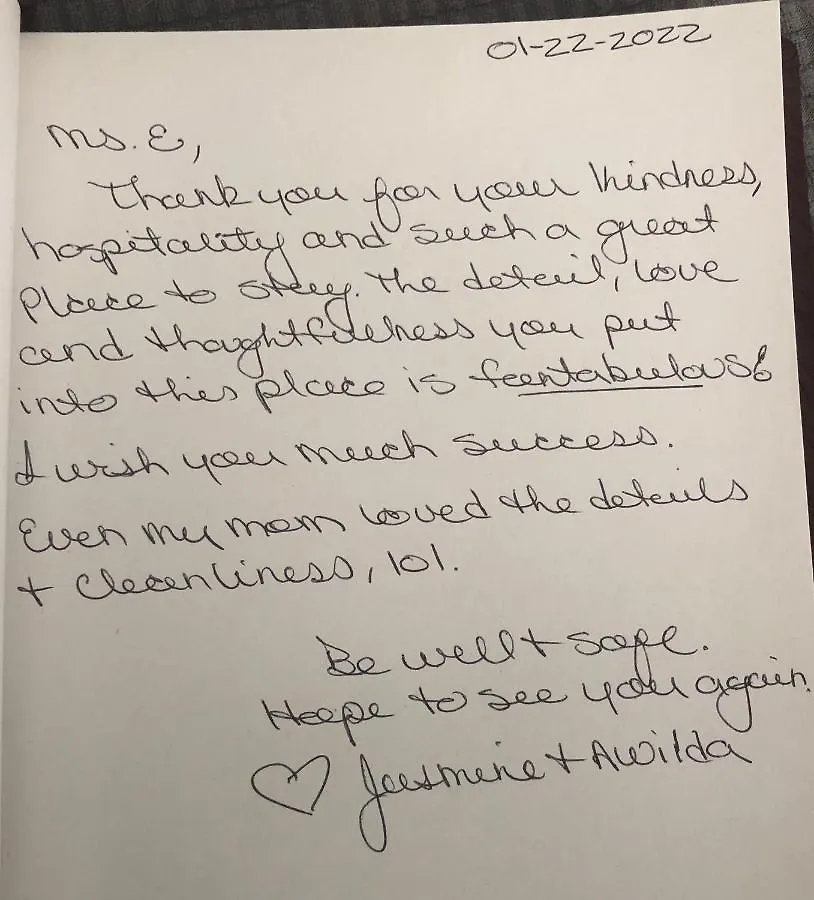 01-22-2022
Ms. E,
Thank you for your kindness,
hospitality and such a great
place to stay. The detail, love
and thoughtfulness you put
into this place is fantabulous!
I wish you much success.
Even my mom loved the details
+ cleanliness, lol.
Be well + safe.
Hope to see you again.
♡ Jasmine + Awilda